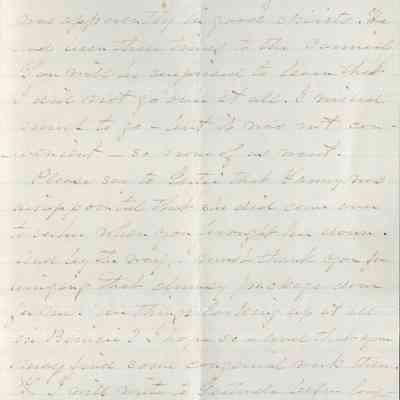 was apparently in good spirits. He
had been three times to the
You will be surprised to learn that
I did not go over at all. I
meant to go - but it was not con-
venient - so none of us went.
Please say to that Fanny was
disappointed that she did come over
to when you brought her down.
And by the way, I must thank you for
bringing that package down
for me. Are things looking up at all
in ? I hope so - and that you
may find some congenial work there.
I will write to before long